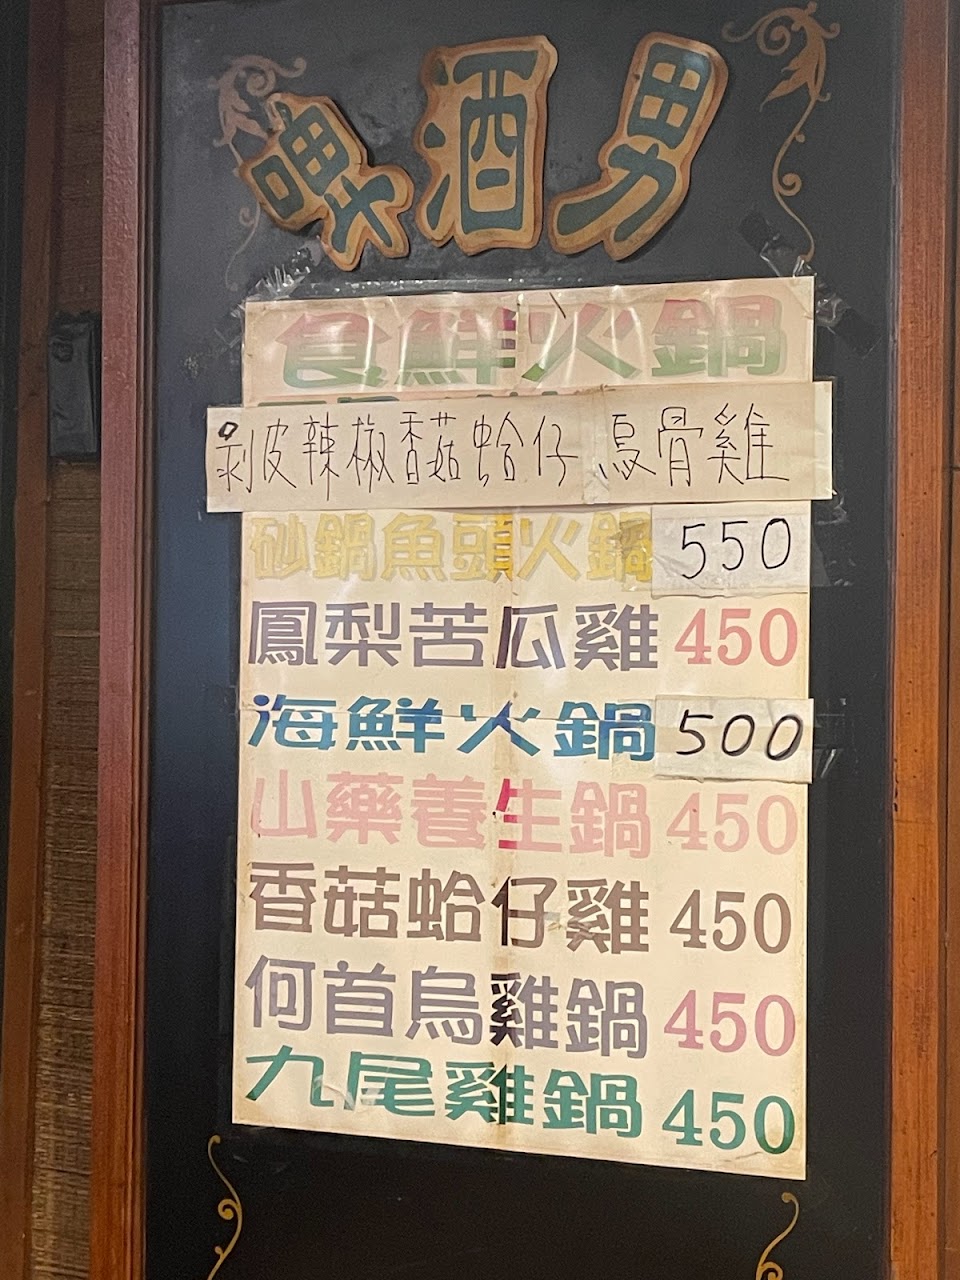 啤酒男
食鮮火鍋
剝皮辣椒香菇蛤仔 烏骨雞
砂鍋魚頭火鍋 550
鳳梨苦瓜雞 450
海鮮火鍋 500
山藥養生鍋 450
香菇蛤仔雞 450
何首烏雞鍋 450
九尾雞鍋 450